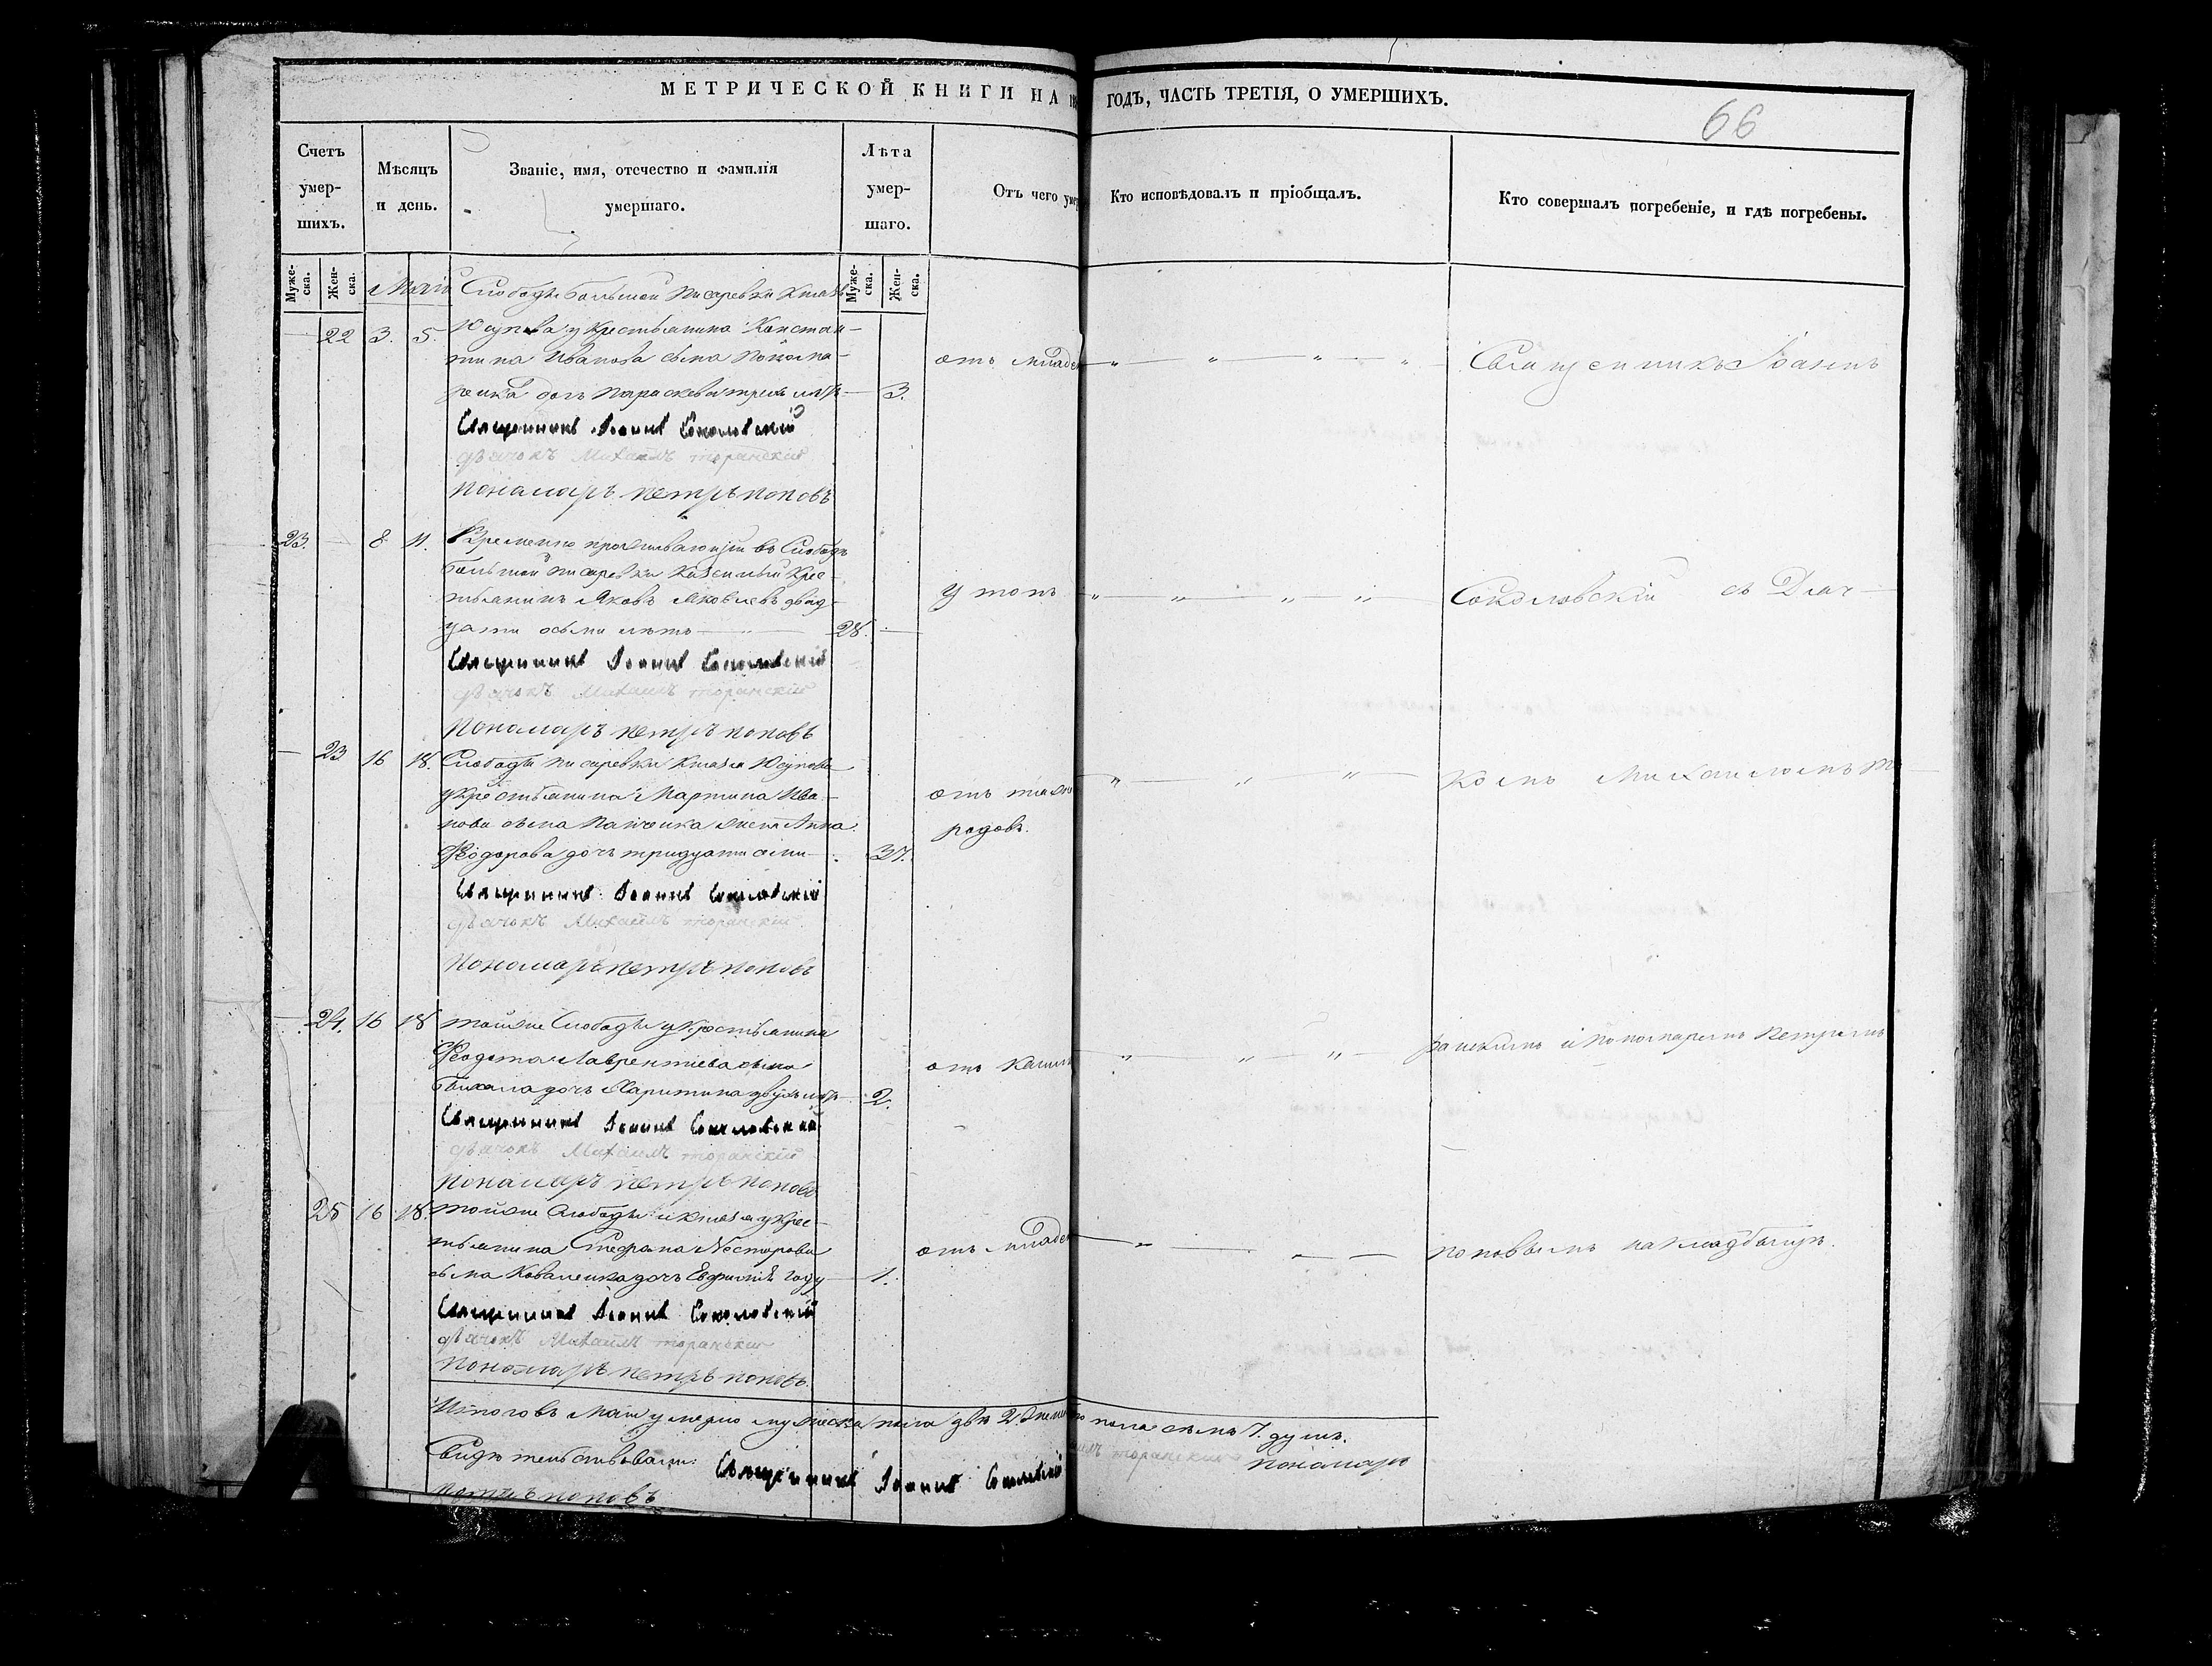 МЕТРИЧЕСКОЙ КНИГИ НА 18
ГОДЪ, ЧАСТЬ ТРЕТІЯ, О УМЕРШИХЪ.
66
Счетъ умер-шихъ.
Мѣсяцъ и день.
Званіе, имя, отечество и фамилія умершаго.
Лѣта умер-шаго.
Отъ чего умер
Кто исповѣдовалъ и пріобщалъ.
Кто совершалъ погребеніе, и гдѣ погребены.
Муже-ска.
Жен-ска.
Муже-ска.
Жен-ска.
Маія Слободы Большой Писаревки Князя
22 3. 5. Юсупова у крестьянина Констан-
тина Иванова сына Пономa-
ренка дочь Параскева трехъ лѣтъ 3.
отъ младен
Священникъ Іоаннъ
Священникъ Іоаннъ Соколовскій
дьячокъ Михаилъ торанскій
пономарь петръ поповъ
23. 8 11. Временно проживающій въ Слободѣ
большой Писаревки казенный крес-
тьянинъ Яковъ Яковлевъ двад-
цати осьми лѣтъ 28.
утопъ
Соколовскій съ Дьяч-
Священникъ Іоаннъ Соколовскій
дьячокъ Михаилъ торанскій
пономарь петръ поповъ
23 16 18. Слободы Писаревки Князя Юсупова
у крестьянина Мартина Ива-
нова сына жена Анна
Феодорова дочь тридцати семи 37.
отъ
родовъ.
комъ Михаиломъ То
Священникъ Іоаннъ Соколовскій
дьячокъ Михаилъ торанскій
пономарь петръ поповъ
24. 16 18 тойже Слободы у крестьянина
Феодота Лаврентіева сына
дочь Харитина двухъ лѣтъ 2.
отъ кашля
ранскимъ и пономаремъ Петромъ
Священникъ Іоаннъ Соколовскій
дьячокъ Михаилъ торанскій
пономарь петръ поповъ
25 16 18. тойже Слободы и князя у крес-
тьянина Стефана Нестерова
сына Коваленка дочь Евфимія году 1.
отъ младен
поповымъ на кладбищѣ.
Священникъ Іоаннъ Соколовскій
дьячокъ Михаилъ торанскій
пономарь петръ поповъ.
Итого въ маіи умерло мужеска пола два 2 женско пола семь 7. душъ.
Свидѣтельствовали: Священникъ Іоаннъ Соколовскій торанскій пономарь
петръ поповъ